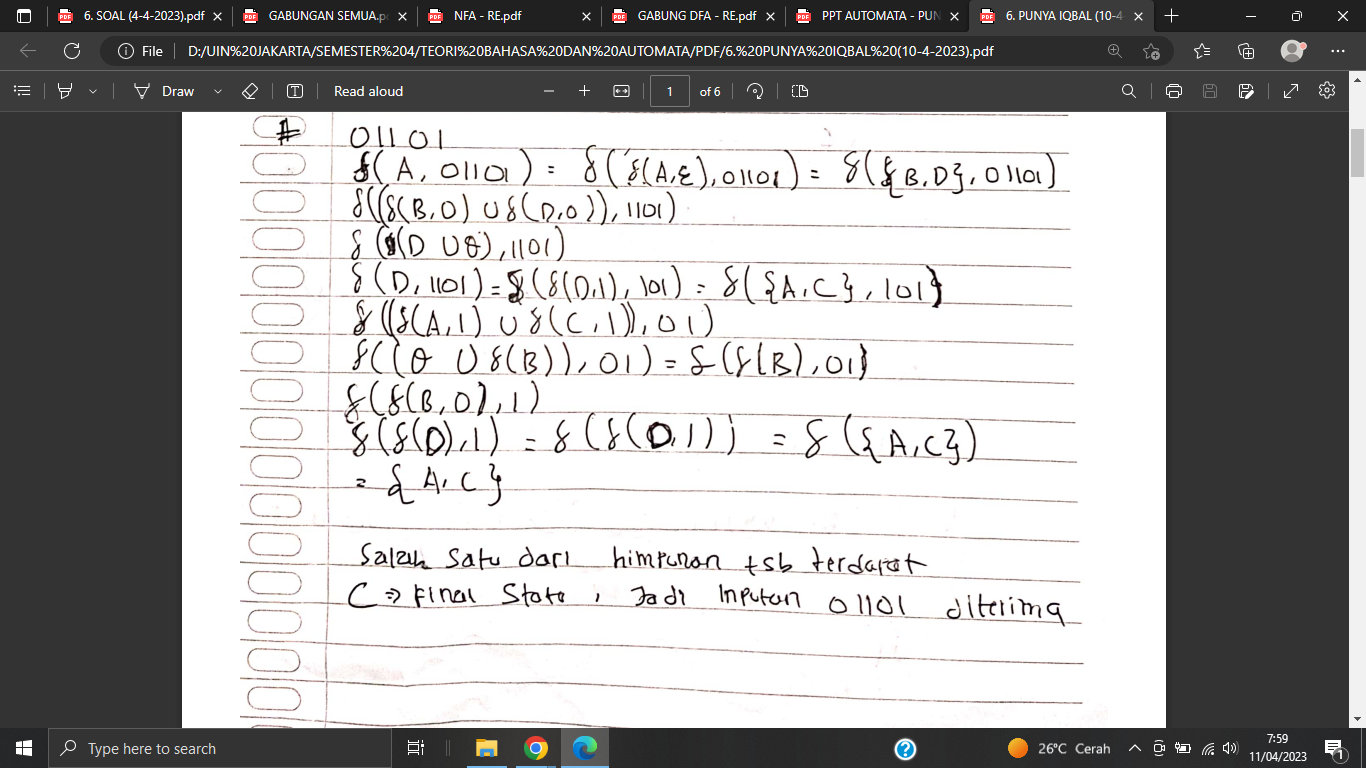 6. SOAL (4-4-2023).pdf
GABUNGAN SEMUA.p
NFA - RE.pdf
GABUNG DFA - RE.pdf
PPT AUTOMATA - PUN
6. PUNYA IQBAL (10-4
File
D:/UIN%20JAKARTA/SEMESTER%204/TEORI%20BAHASA%20DAN%20AUTOMATA/PDF/6.%20PUNYA%20IQBAL%20(10-4-2023).pdf
Draw
Read aloud
1
of 6
# 01101
δ(A, 01101) = δ(δ(A,ε), 01101) = δ({B,D}, 01101)
δ((δ(B,0) ∪ δ(D,0)), 1101)
δ((D ∪ θ), 1101)
δ(D, 1101) = δ(δ(D,1), 101) = δ({A,C}, 101}
δ((δ(A,1) ∪ δ(C,1)), 01)
δ((θ ∪ δ(B)), 01) = δ(δ(B), 01)
δ(δ(B,0), 1)
δ(δ(D),1) = δ(δ(D,1)) = δ({A,C})
= {A,C}
Salah satu dari himpunan tsb terdapat
C ⇒ Final State, Jadi Inputan 01101 diterima
Type here to search
26°C Cerah
7:59
11/04/2023
1